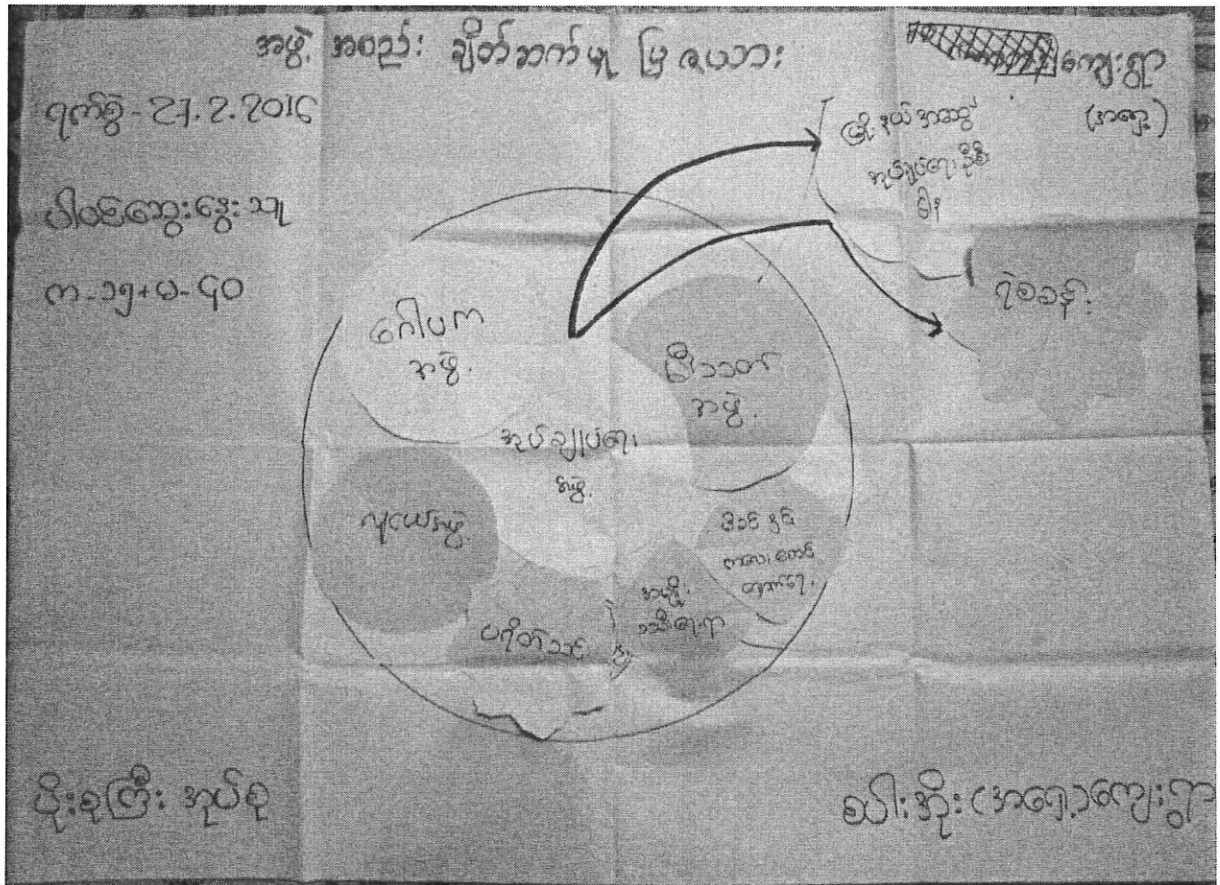 အဖွဲ့ အစည်း ချိတ်ဆက်မှု ပြ ဇယား
ကျေးရွာ
(အရှေ့)
ရက်စွဲ - 27.2.2016
ပါဝင်ဆွေးနွေးသူ
က - ၁၅ + မ - ၄၀
မြို့နယ် အထွေ
အုပ်ချုပ်ရေး ဦးစီး
ဌာန
ရဲစခန်း
ဂေါပက
အဖွဲ့
မီးသတ်
အဖွဲ့
အုပ်ချုပ်ရေး
အဖွဲ့
လူငယ်အဖွဲ့
မိခင် နှင့်
ကလေး စောင့်
ရှောက်ရေး
အမျိုး
သမီးရေးရာ
ပရိတ်သင်း
ပိုးစုကြီး အုပ်စု
စပါးအိုး (အရှေ့) ကျေးရွာ